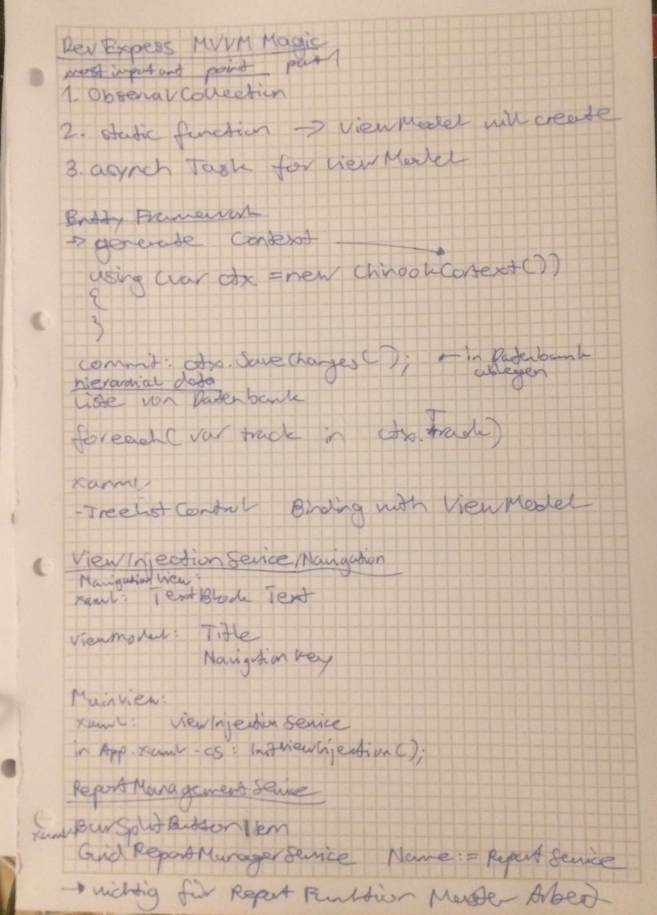 DevExpress MVVM Magic
most important point part 1
1. ObservalCollection
2. static function → ViewModel will create
3. asynch Task for ViewModel
Entity Framework
→ generate Context
using (var ctx = new ChinookContext())
{
}
commit: ctx.SaveChanges(); ← in Datenbank
ablegen
hierarchial data
Liste von Datenbank
foreach( var track in ctx.Track)
xaml:
- TreeListControl Binding with ViewModel
ViewInjectionService/Navigation
NavigationView:
xaml: TextBlock Text
viewmodel: Title
NavigationKey
Mainview:
xaml: ViewInjectionService
in App.xaml.cs: InitViewInjection();
ReportManagementService
xaml: BarSplitButtonItem
GridReportManagerService Name:= ReportService
→ wichtig für Report Funktion Master Arbeit